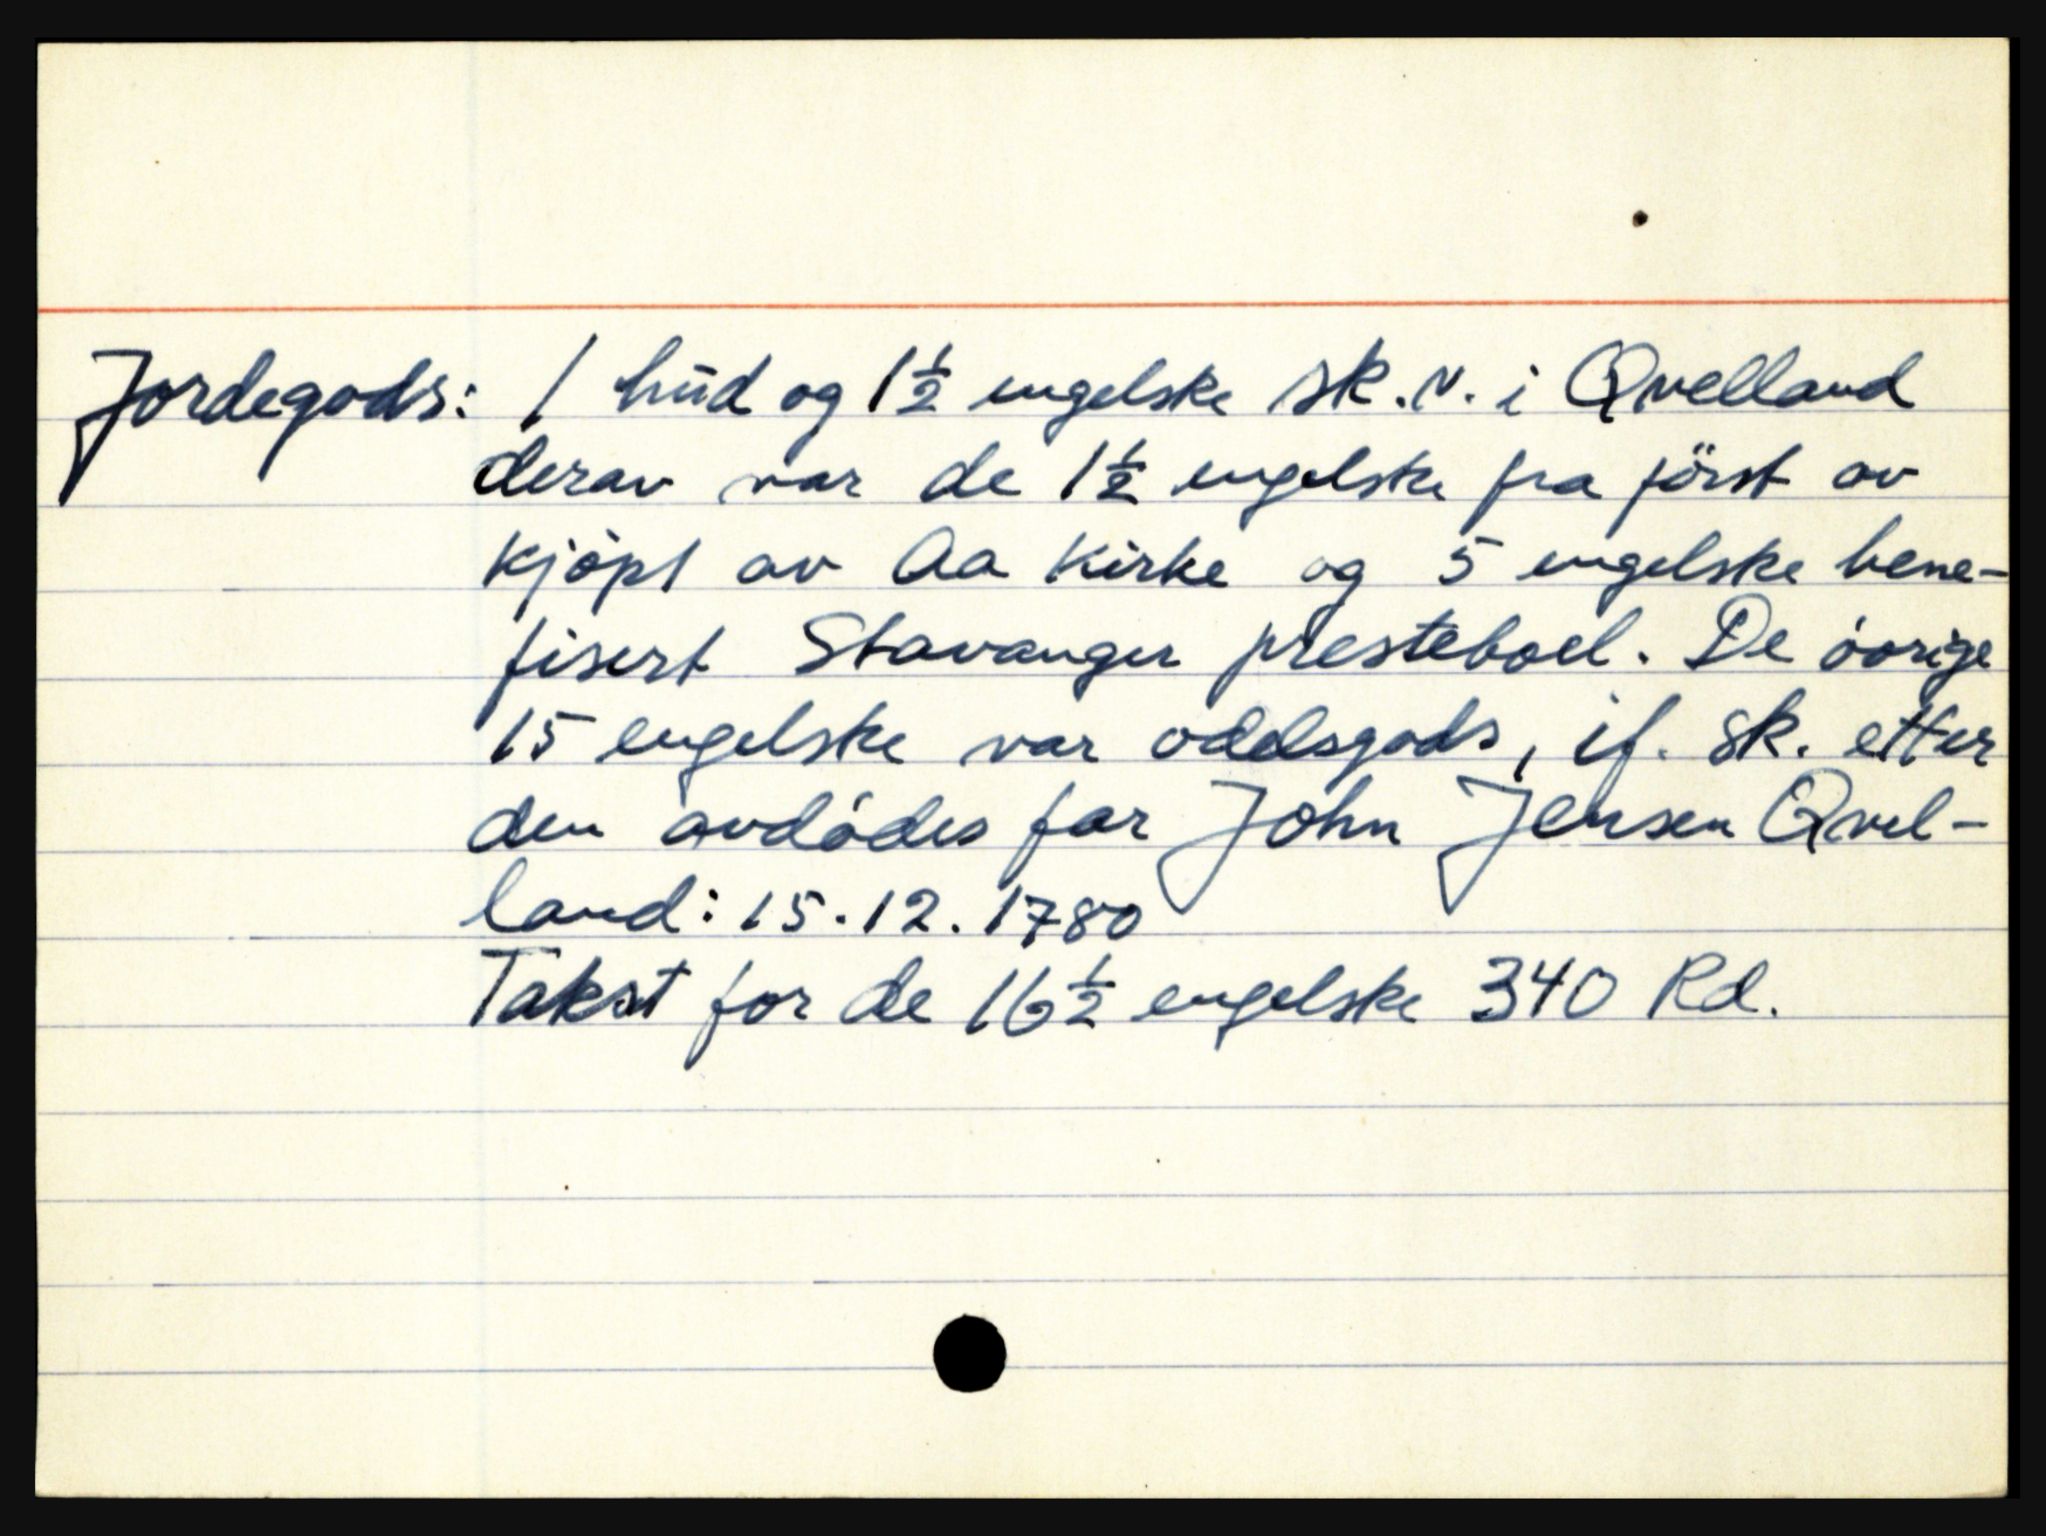 Jordegods: 1 hud og 1½ engelske sk.v. i Qvelland
derav var de 1½ engelske fra först av
kjöpt av Aa Kirke og 5 engelske bene-
fisert Stavanger presteboel. De övrige
15 engelske var odelsgods, if. sk. etter
den avdödes far John Jensen Qvel-
land: 15.12.1780
Takst for de 16½ engelske 340 Rd.